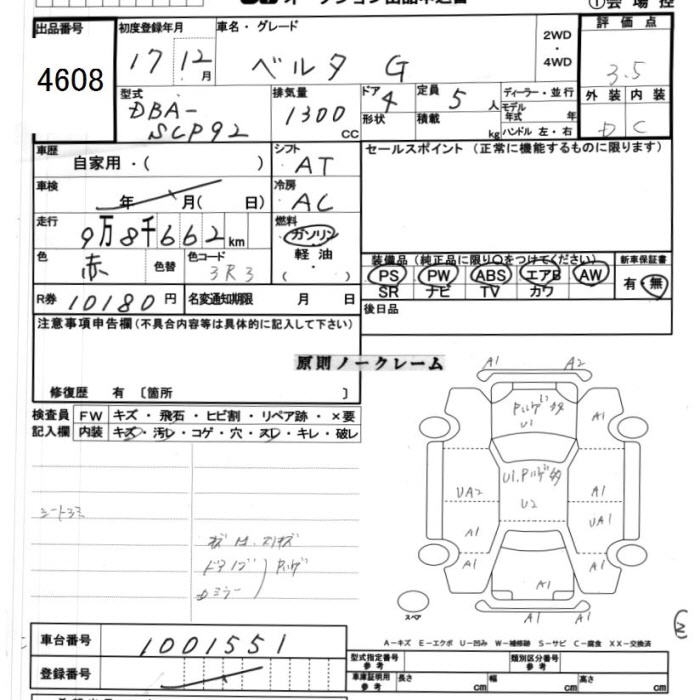 オークション出品申込書
①会場控
出品番号
4608
初度登録年月
17 12月
車名・グレード
ベルタ G
2WD
・
4WD
評価点
3.5
外装 内装
D C
型式
DBA-
SCP92
排気量
1300
CC
ドア 4
形状
定員 5 人
積載 kg
ディーラー・並行
モデル
年式 年
ハンドル 左・右
車歴
自家用・( )
シフト
AT
セールスポイント (正常に機能するものに限ります)
車検
年 月( 日)
冷房
AC
走行
9万8千662km
燃料
ガソリン
軽油
・( )
色
赤
色替
色コード
3R3
装備品 (純正品に限り○をつけてください)
PS PW ABS エアB AW
SR ナビ TV カワ
新車保証書
有・無
R券 10180円
名変通知期限 月 日
後日品
注意事項申告欄(不具合内容等は具体的に記入して下さい)
原則ノークレーム
修復歴 有 〔箇所 〕
検査員
記入欄
FW キズ・飛石・ヒビ割・リペア跡・×要
内装 キズ・汚レ・コゲ・穴・スレ・キレ・破レ
A1 A2
U1
A1
UA2
U2
A1
A1
UA1
A1
A1
A1
A1 A1
スペア
A-キズ E-エクボ U-凹み W-補修跡 S-サビ C-腐食 XX-交換済
車台番号
1001551
登録番号
型式指定番号
参考
類別区分番号
参考
車庫証明用
参考
長さ cm
幅 cm
高さ cm